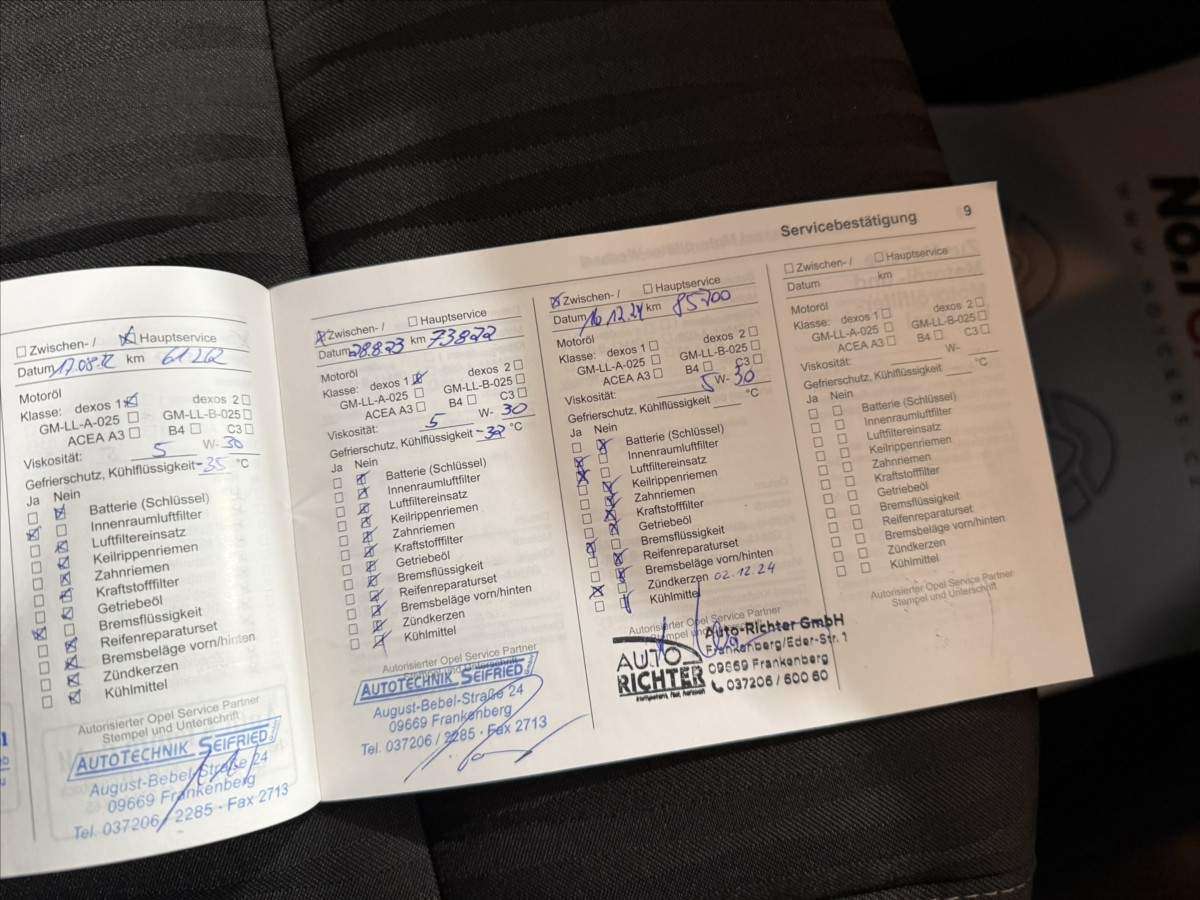 Servicebestätigung 9
Zwischen- / Hauptservice
Datum 17.08. km 61262
Motoröl
Klasse: dexos 1 dexos 2
GM-LL-A-025 GM-LL-B-025
ACEA A3 B4 C3
Viskosität: 5 W- 30
Gefrierschutz, Kühlflüssigkeit -35 °C
Ja Nein
Batterie (Schlüssel)
Innenraumluftfilter
Luftfiltereinsatz
Keilrippenriemen
Zahnriemen
Kraftstofffilter
Getriebeöl
Bremsflüssigkeit
Reifenreparaturset
Bremsbeläge vorn/hinten
Zündkerzen
Kühlmittel
Autorisierter Opel Service Partner
Stempel und Unterschrift
AUTOTECHNIK SEIFRIED
August-Bebel-Straße 24
09669 Frankenberg
Tel. 037206 / 2285 · Fax 2713
Zwischen- / Hauptservice
Datum 28.8.23 km 73822
Motoröl
Klasse: dexos 1 dexos 2
GM-LL-A-025 GM-LL-B-025
ACEA A3 B4 C3
Viskosität: 5 W- 30
Gefrierschutz, Kühlflüssigkeit °C
Ja Nein
Batterie (Schlüssel)
Innenraumluftfilter
Luftfiltereinsatz
Keilrippenriemen
Zahnriemen
Kraftstofffilter
Getriebeöl
Bremsflüssigkeit
Reifenreparaturset
Bremsbeläge vorn/hinten
Zündkerzen
Kühlmittel
Autorisierter Opel Service Partner
Stempel und Unterschrift
AUTOTECHNIK SEIFRIED
August-Bebel-Straße 24
09669 Frankenberg
Tel. 037206 / 2285 · Fax 2713
Zwischen- / Hauptservice
Datum 12.24 km 85200
Motoröl
Klasse: dexos 1 dexos 2
GM-LL-A-025 GM-LL-B-025
ACEA A3 B4 C3
Viskosität: 5 W- 30
Gefrierschutz, Kühlflüssigkeit °C
Ja Nein
Batterie (Schlüssel)
Innenraumluftfilter
Luftfiltereinsatz
Keilrippenriemen
Zahnriemen
Kraftstofffilter
Getriebeöl
Bremsflüssigkeit
Reifenreparaturset
Bremsbeläge vorn/hinten
Zündkerzen 02.12.24
Kühlmittel
Autorisierter Opel Service Partner
AUTO RICHTER
Auto-Richter GmbH
Frankenberg/Eder-Str. 1
09669 Frankenberg
037206 / 600 60
Zwischen- / Hauptservice
Datum km
Motoröl
Klasse: dexos 1 dexos 2
GM-LL-A-025 GM-LL-B-025
ACEA A3 B4 C3
Viskosität: W-
Gefrierschutz, Kühlflüssigkeit °C
Ja Nein
Batterie (Schlüssel)
Innenraumluftfilter
Luftfiltereinsatz
Keilrippenriemen
Zahnriemen
Kraftstofffilter
Getriebeöl
Bremsflüssigkeit
Reifenreparaturset
Bremsbeläge vorn/hinten
Zündkerzen
Kühlmittel
Autorisierter Opel Service Partner
Stempel und Unterschrift